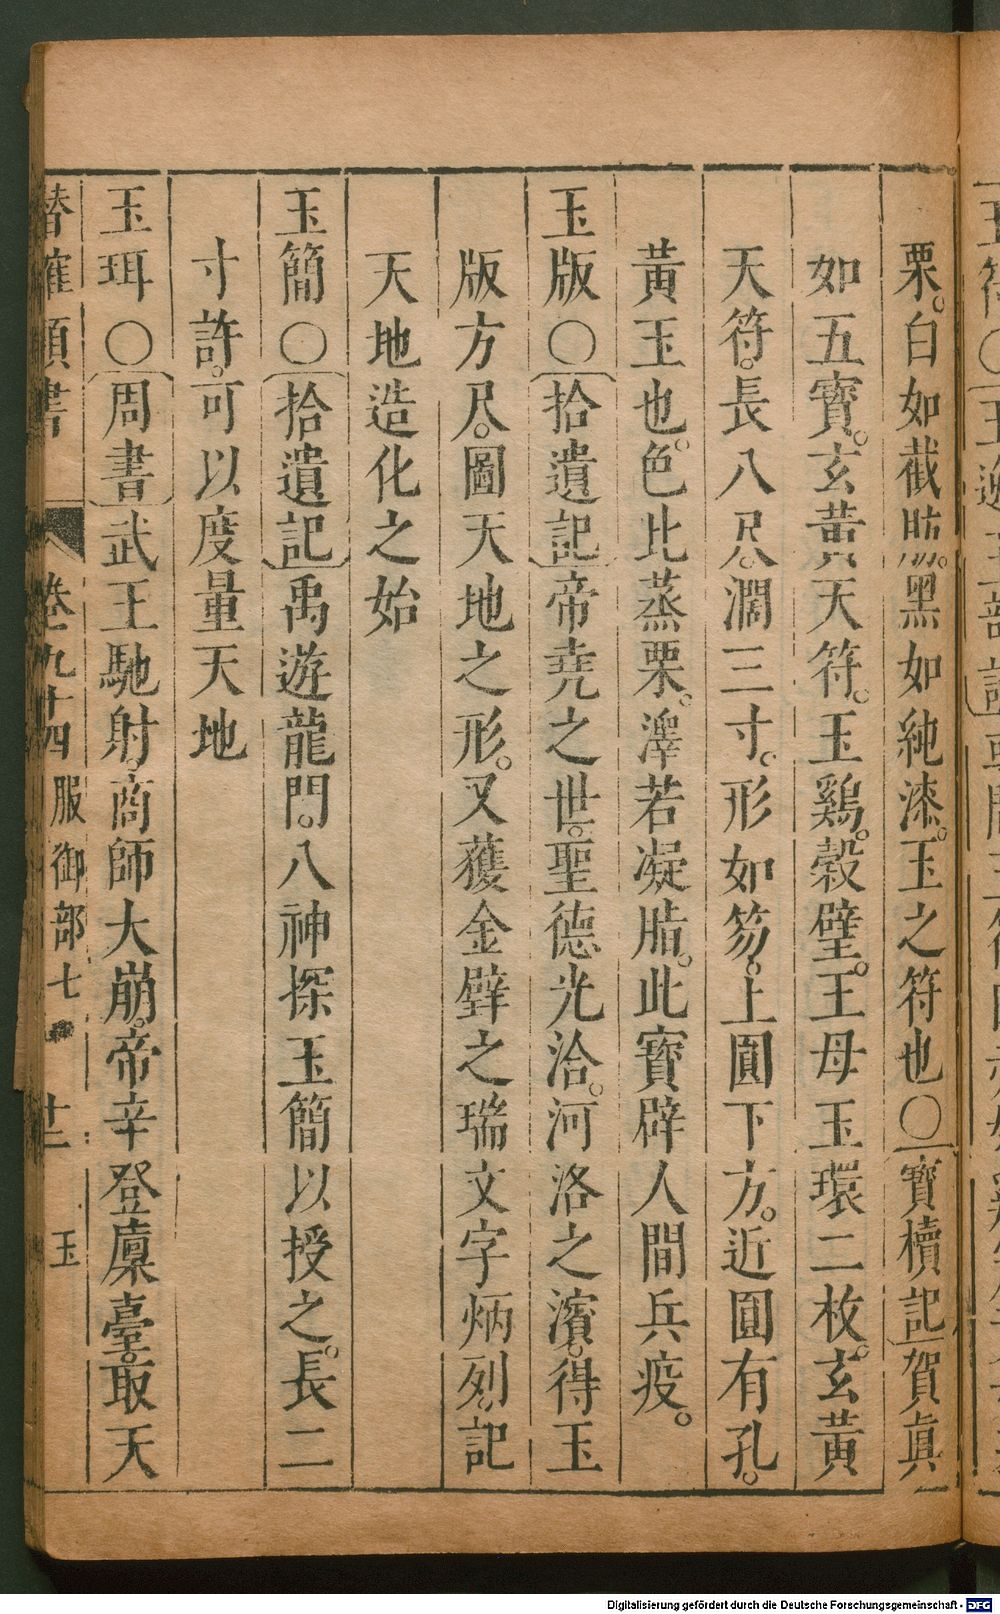 栗。白如截肪。黑如純漆。玉之符也〇寶櫝記賀眞
如五寶。玄黃天符。玉鷄。穀璧。王母玉環二枚。玄黃
天符。長八尺。濶三寸。形如笏。上圓下方。近圓有孔。
黃玉也。色比蒸栗。澤若凝脂。此寶辟人間兵疫。
玉版〇拾遺記帝堯之世。聖德光洽。河洛之濱。得玉
版方尺。圖天地之形。又獲金璧之瑞文字炳列。記
天地造化之始
玉簡〇拾遺記禹遊龍門。八神探玉簡以授之。長二
寸許。可以度量天地
玉珥〇周書武王馳射。商師大崩。帝辛登廩臺。取天
潛確類書 卷九十四 服御部七 十二 玉
Digitalisierung gefördert durch die Deutsche Forschungsgemeinschaft - DFG